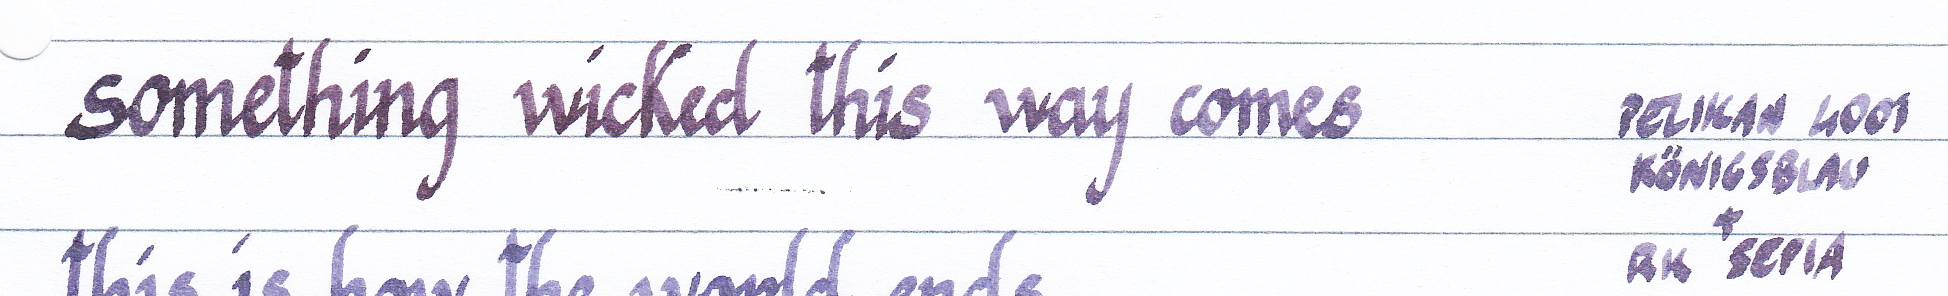 something wicked this way comes
PELIKAN 4001
KÖNIGSBLAU
+
RK SEPIA
this is how the world ends